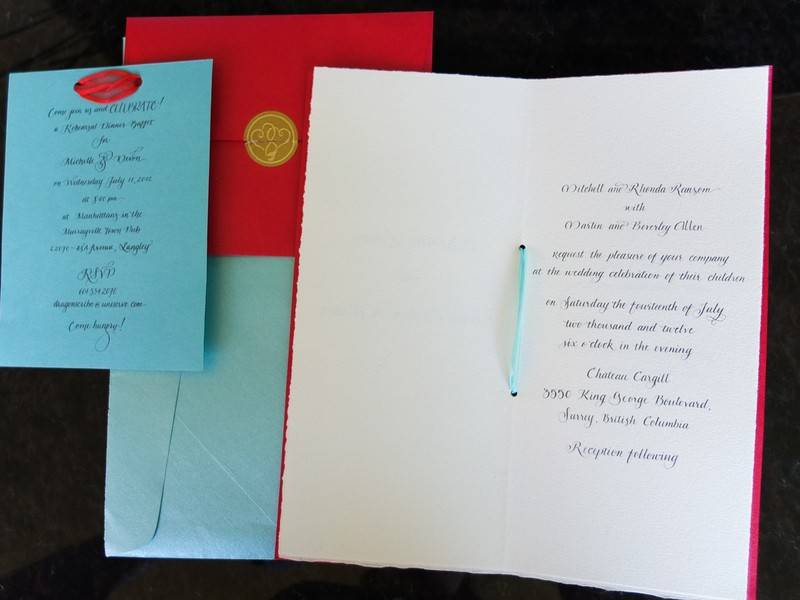 Come join us and CELEBRATE!
a Rehearsal Dinner Buffet
for
Michelle & Devon
on Wednesday July 11, 2012
at 8:00 pm
at Manhattans in the
Murrayville Town Pub
22070 - 48A Avenue, Langley
RSVP
604.534.2070
dragonscribe@uniserve.com
Come hungry!
Mitchell and Rhonda Ransom
with
Martin and Beverley Allen
request the pleasure of your company
at the wedding celebration of their children
on Saturday the fourteenth of July
two thousand and twelve
six o'clock in the evening
Chateau Cargill
3550 King George Boulevard,
Surrey, British Columbia
Reception following